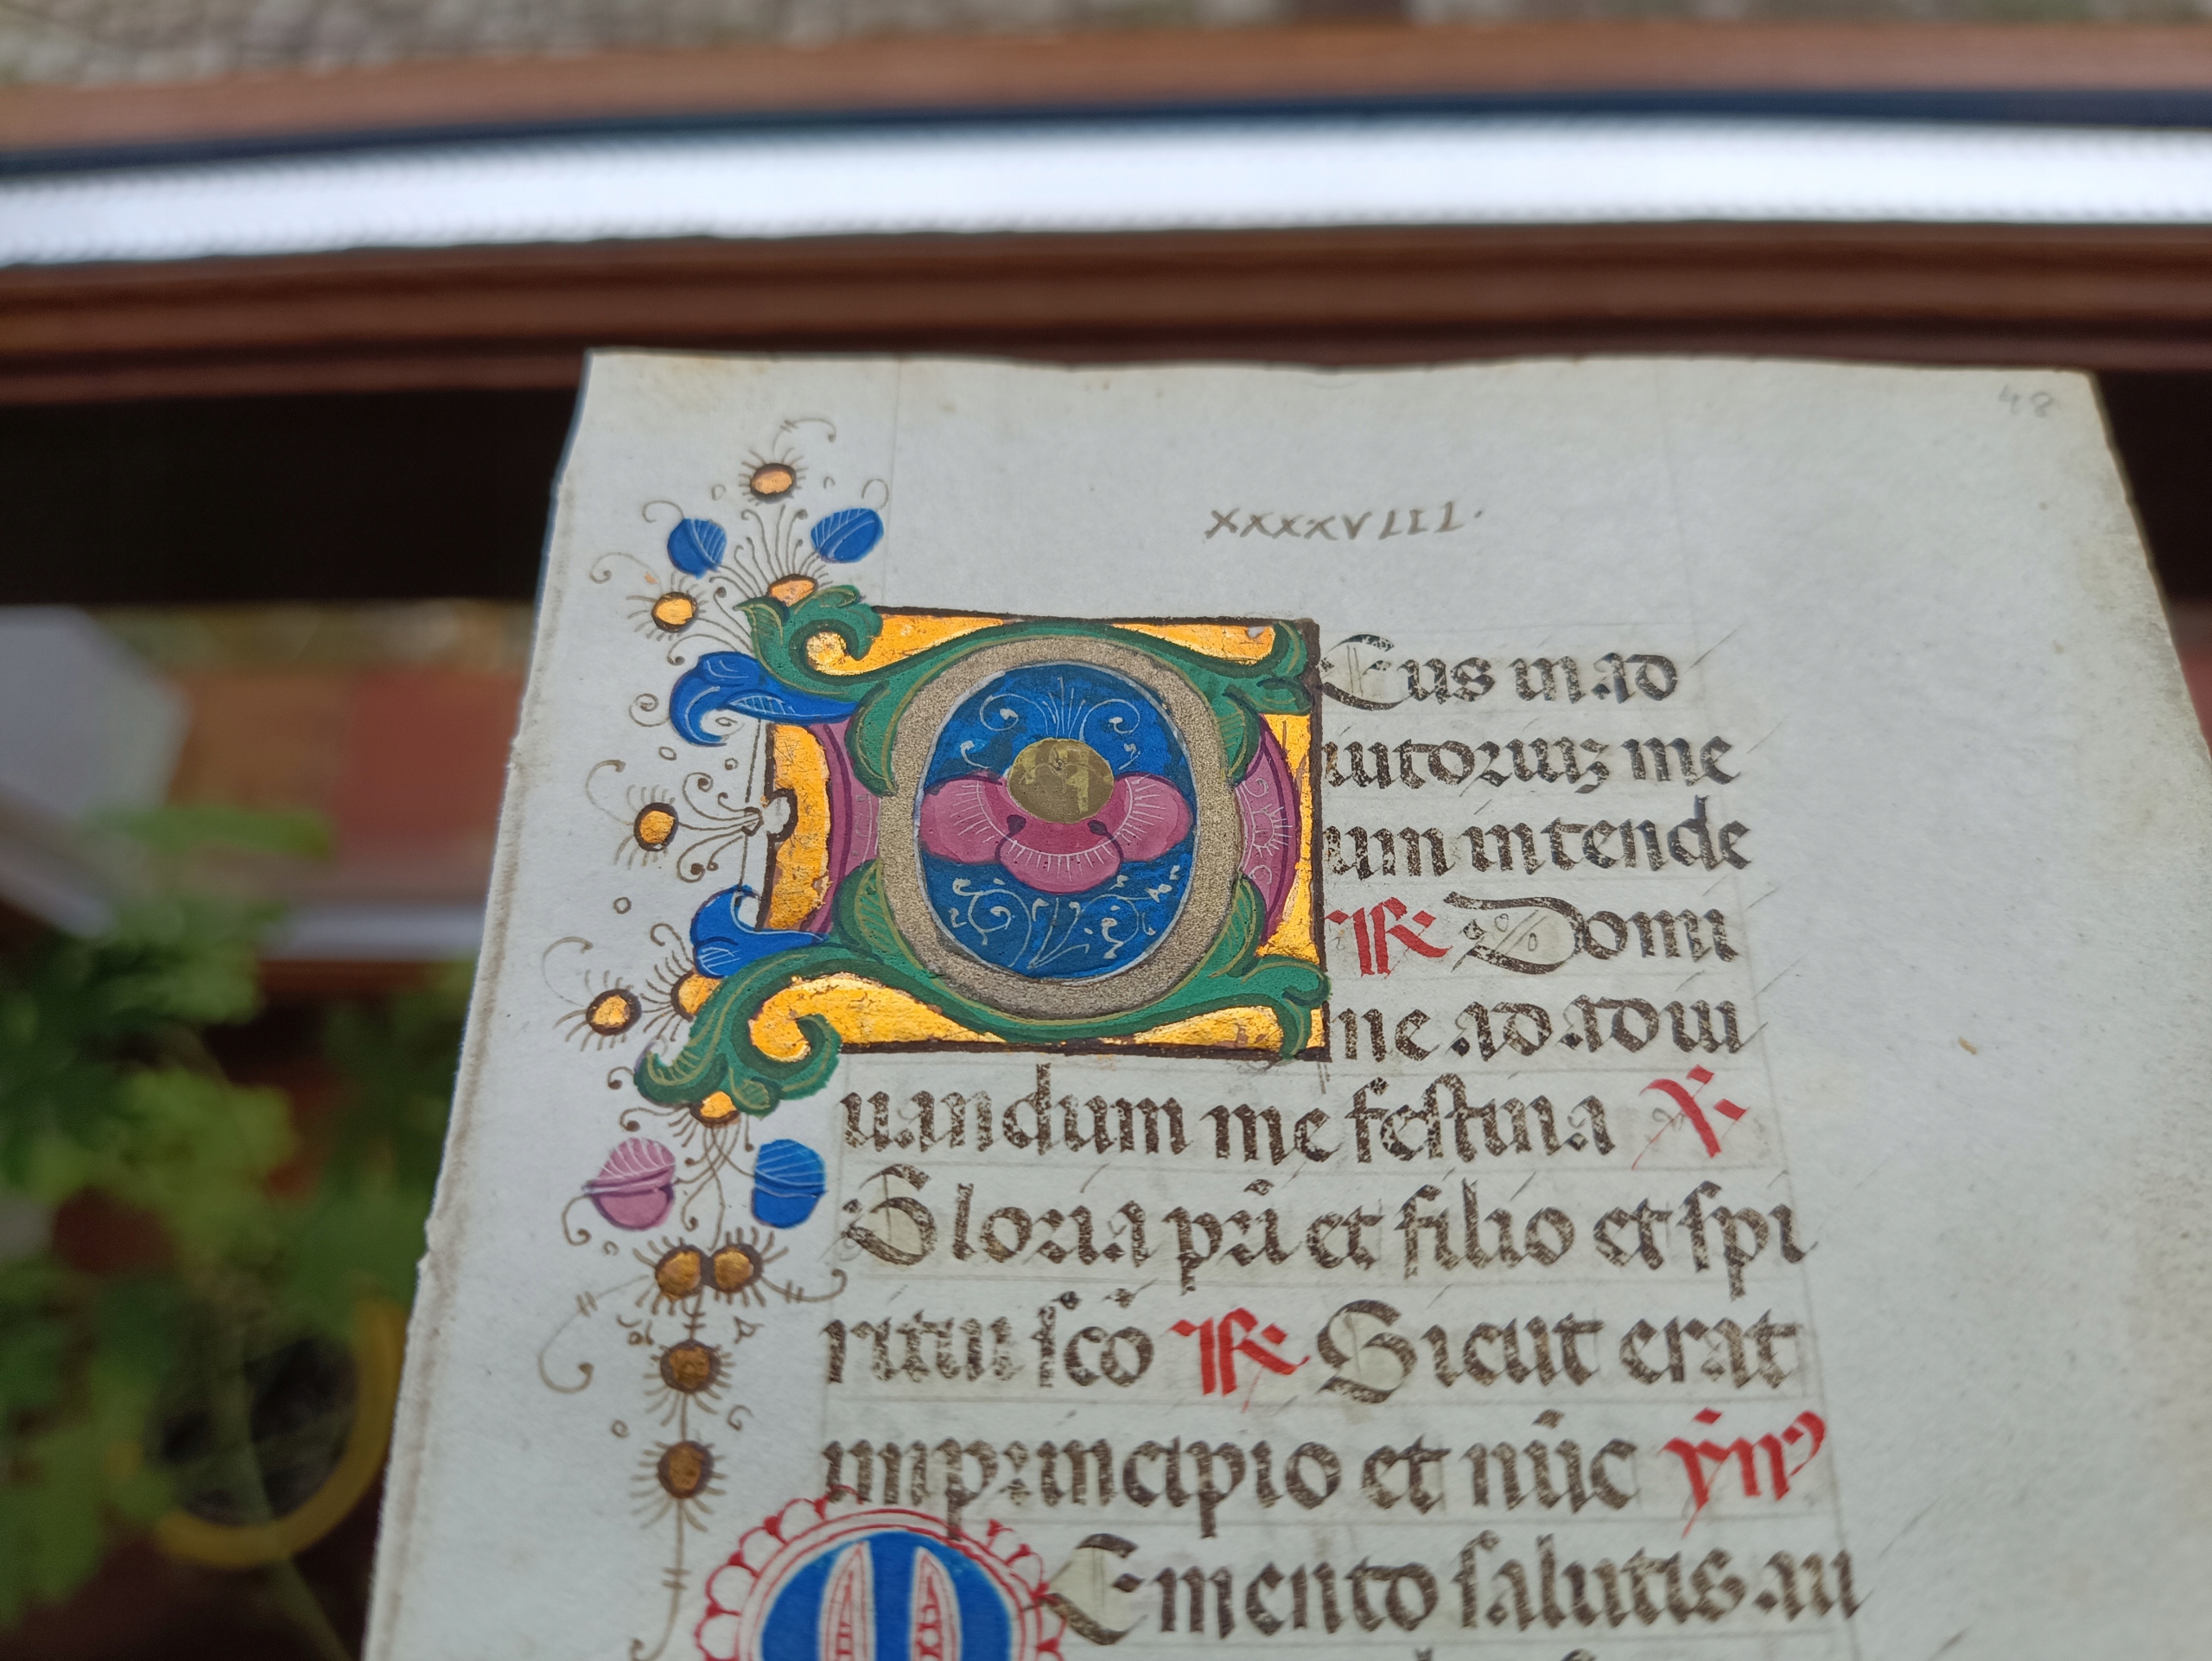 48
xxxxvııı.
DEus in ad
iutoriuʒ me
um intende
℟ Domi
ne ad adiu
uandum me festina ℣
Gloria pr̃i et filio et spi
ritui sc̃o ℟ Sicut erat
in principio et nũc ym̃
MEmento salutis au